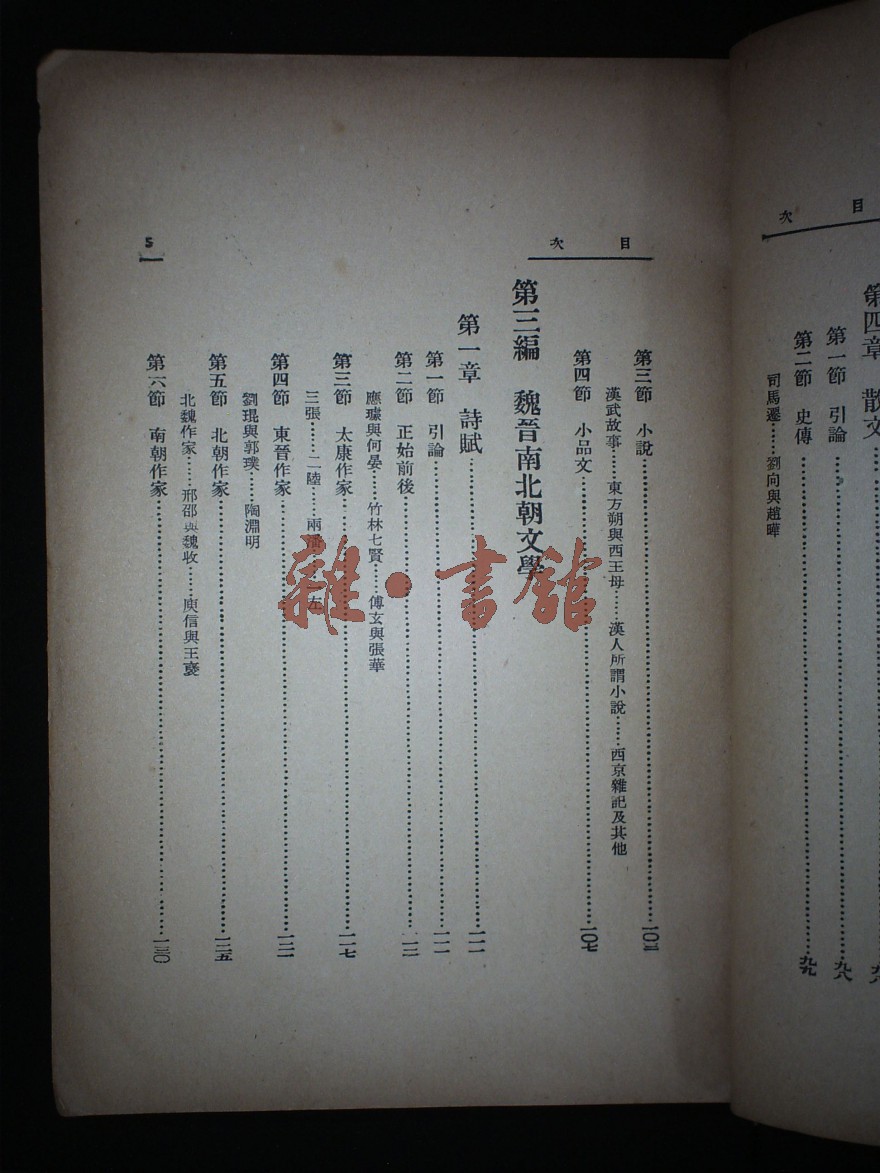 目 次
第四章 散文
第一節 引論……九八
第二節 史傳……九九
司馬遷……劉向與趙曄
目 次
第三節 小說……一〇三
漢武故事……東方朔與西王母……漢人所謂小說……西京雜記及其他
第四節 小品文……一〇七
第三編 魏晉南北朝文學
第一章 詩賦……一一一
第一節 引論……一一一
第二節 正始前後……一一二
應璩與何晏……竹林七賢……傅玄與張華
第三節 太康作家……一一七
三張……二陸……兩潘……一左
第四節 東晉作家……一二一
劉琨與郭璞……陶淵明
第五節 北朝作家……一二五
北魏作家……邢邵與魏收……庾信與王襃
第六節 南朝作家……一三〇
5
雜·書館